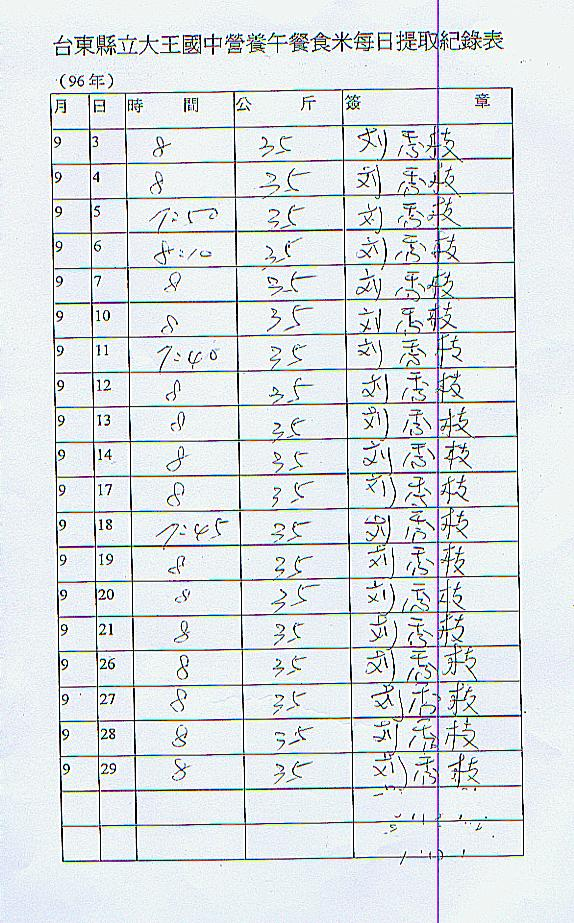 台東縣立大王國中營養午餐食米每日提取紀錄表
（96年）
月 日 時間 公斤 簽章
9 3 8 35 刘香枝
9 4 8 35 刘香枝
9 5 7:50 35 刘香枝
9 6 8:10 35 刘香枝
9 7 8 35 刘香枝
9 10 8 35 刘香枝
9 11 7:40 35 刘香枝
9 12 8 35 刘香枝
9 13 8 35 刘香枝
9 14 8 35 刘香枝
9 17 8 35 刘香枝
9 18 7:45 35 刘香枝
9 19 8 35 刘香枝
9 20 8 35 刘香枝
9 21 8 35 刘香枝
9 26 8 35 刘香枝
9 27 8 35 刘香枝
9 28 8 35 刘香枝
9 29 8 35 刘香枝